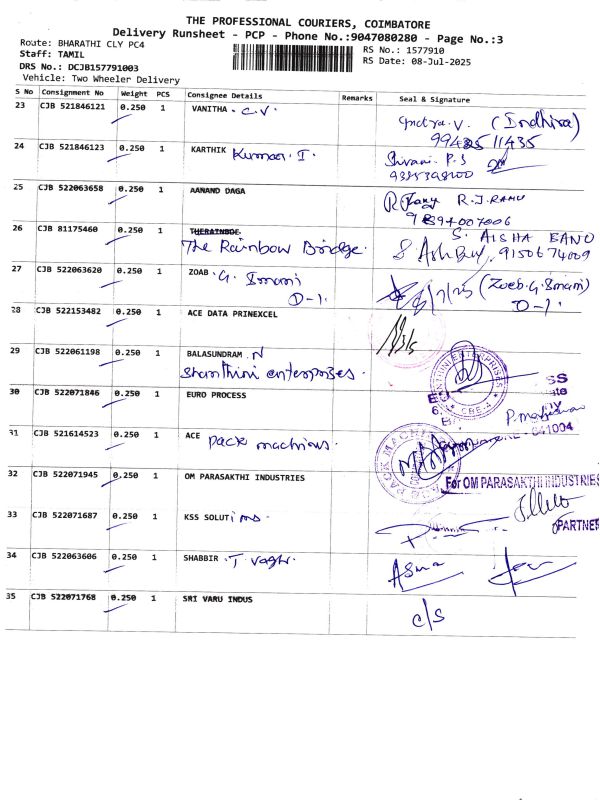 THE PROFESSIONAL COURIERS, COIMBATORE
Delivery Runsheet - PCP - Phone No.:9047080280 - Page No.:3
Route: BHARATHI CLY PC4
RS No.: 1577910
Staff: TAMIL
RS Date: 08-Jul-2025
DRS No.: DCJB157791003
Vehicle: Two Wheeler Delivery
S No Consignment No Weight PCS Consignee Details Remarks Seal & Signature
23 CJB 521846121 0.250 1 VANITHA . C.V. V. (Indhira)
11435
24 CJB 521846123 0.250 1 KARTHIK Kumar. I. Shivani. P.S
25 CJB 522063658 0.250 1 AANAND DAGA R.J. RAMU
26 CJB 81175460 0.250 1 THERAINBOE S. AISHA BANU
The Rainbow Bridge. 9150674009
27 CJB 522063620 0.250 1 ZOAB . G. Imani (Zoeb.G.Imani)
D-1. D-1.
28 CJB 522153482 0.250 1 ACE DATA PRINEXCEL
29 CJB 522061198 0.250 1 BALASUNDRAM . N
Shanthini enterprises. ENTERPRISES
CBE-4
30 CJB 522071846 0.250 1 EURO PROCESS
641004
31 CJB 521614523 0.250 1 ACE Pack machines. PACK MACHI
32 CJB 522071945 0.250 1 OM PARASAKTHI INDUSTRIES For OM PARASAKTHI INDUSTRIES
33 CJB 522071687 0.250 1 KSS SOLUTions. PARTNER
34 CJB 522063606 0.250 1 SHABBIR . T. Vagh. Asma
35 CJB 522071768 0.250 1 SRI VARU INDUS c/s